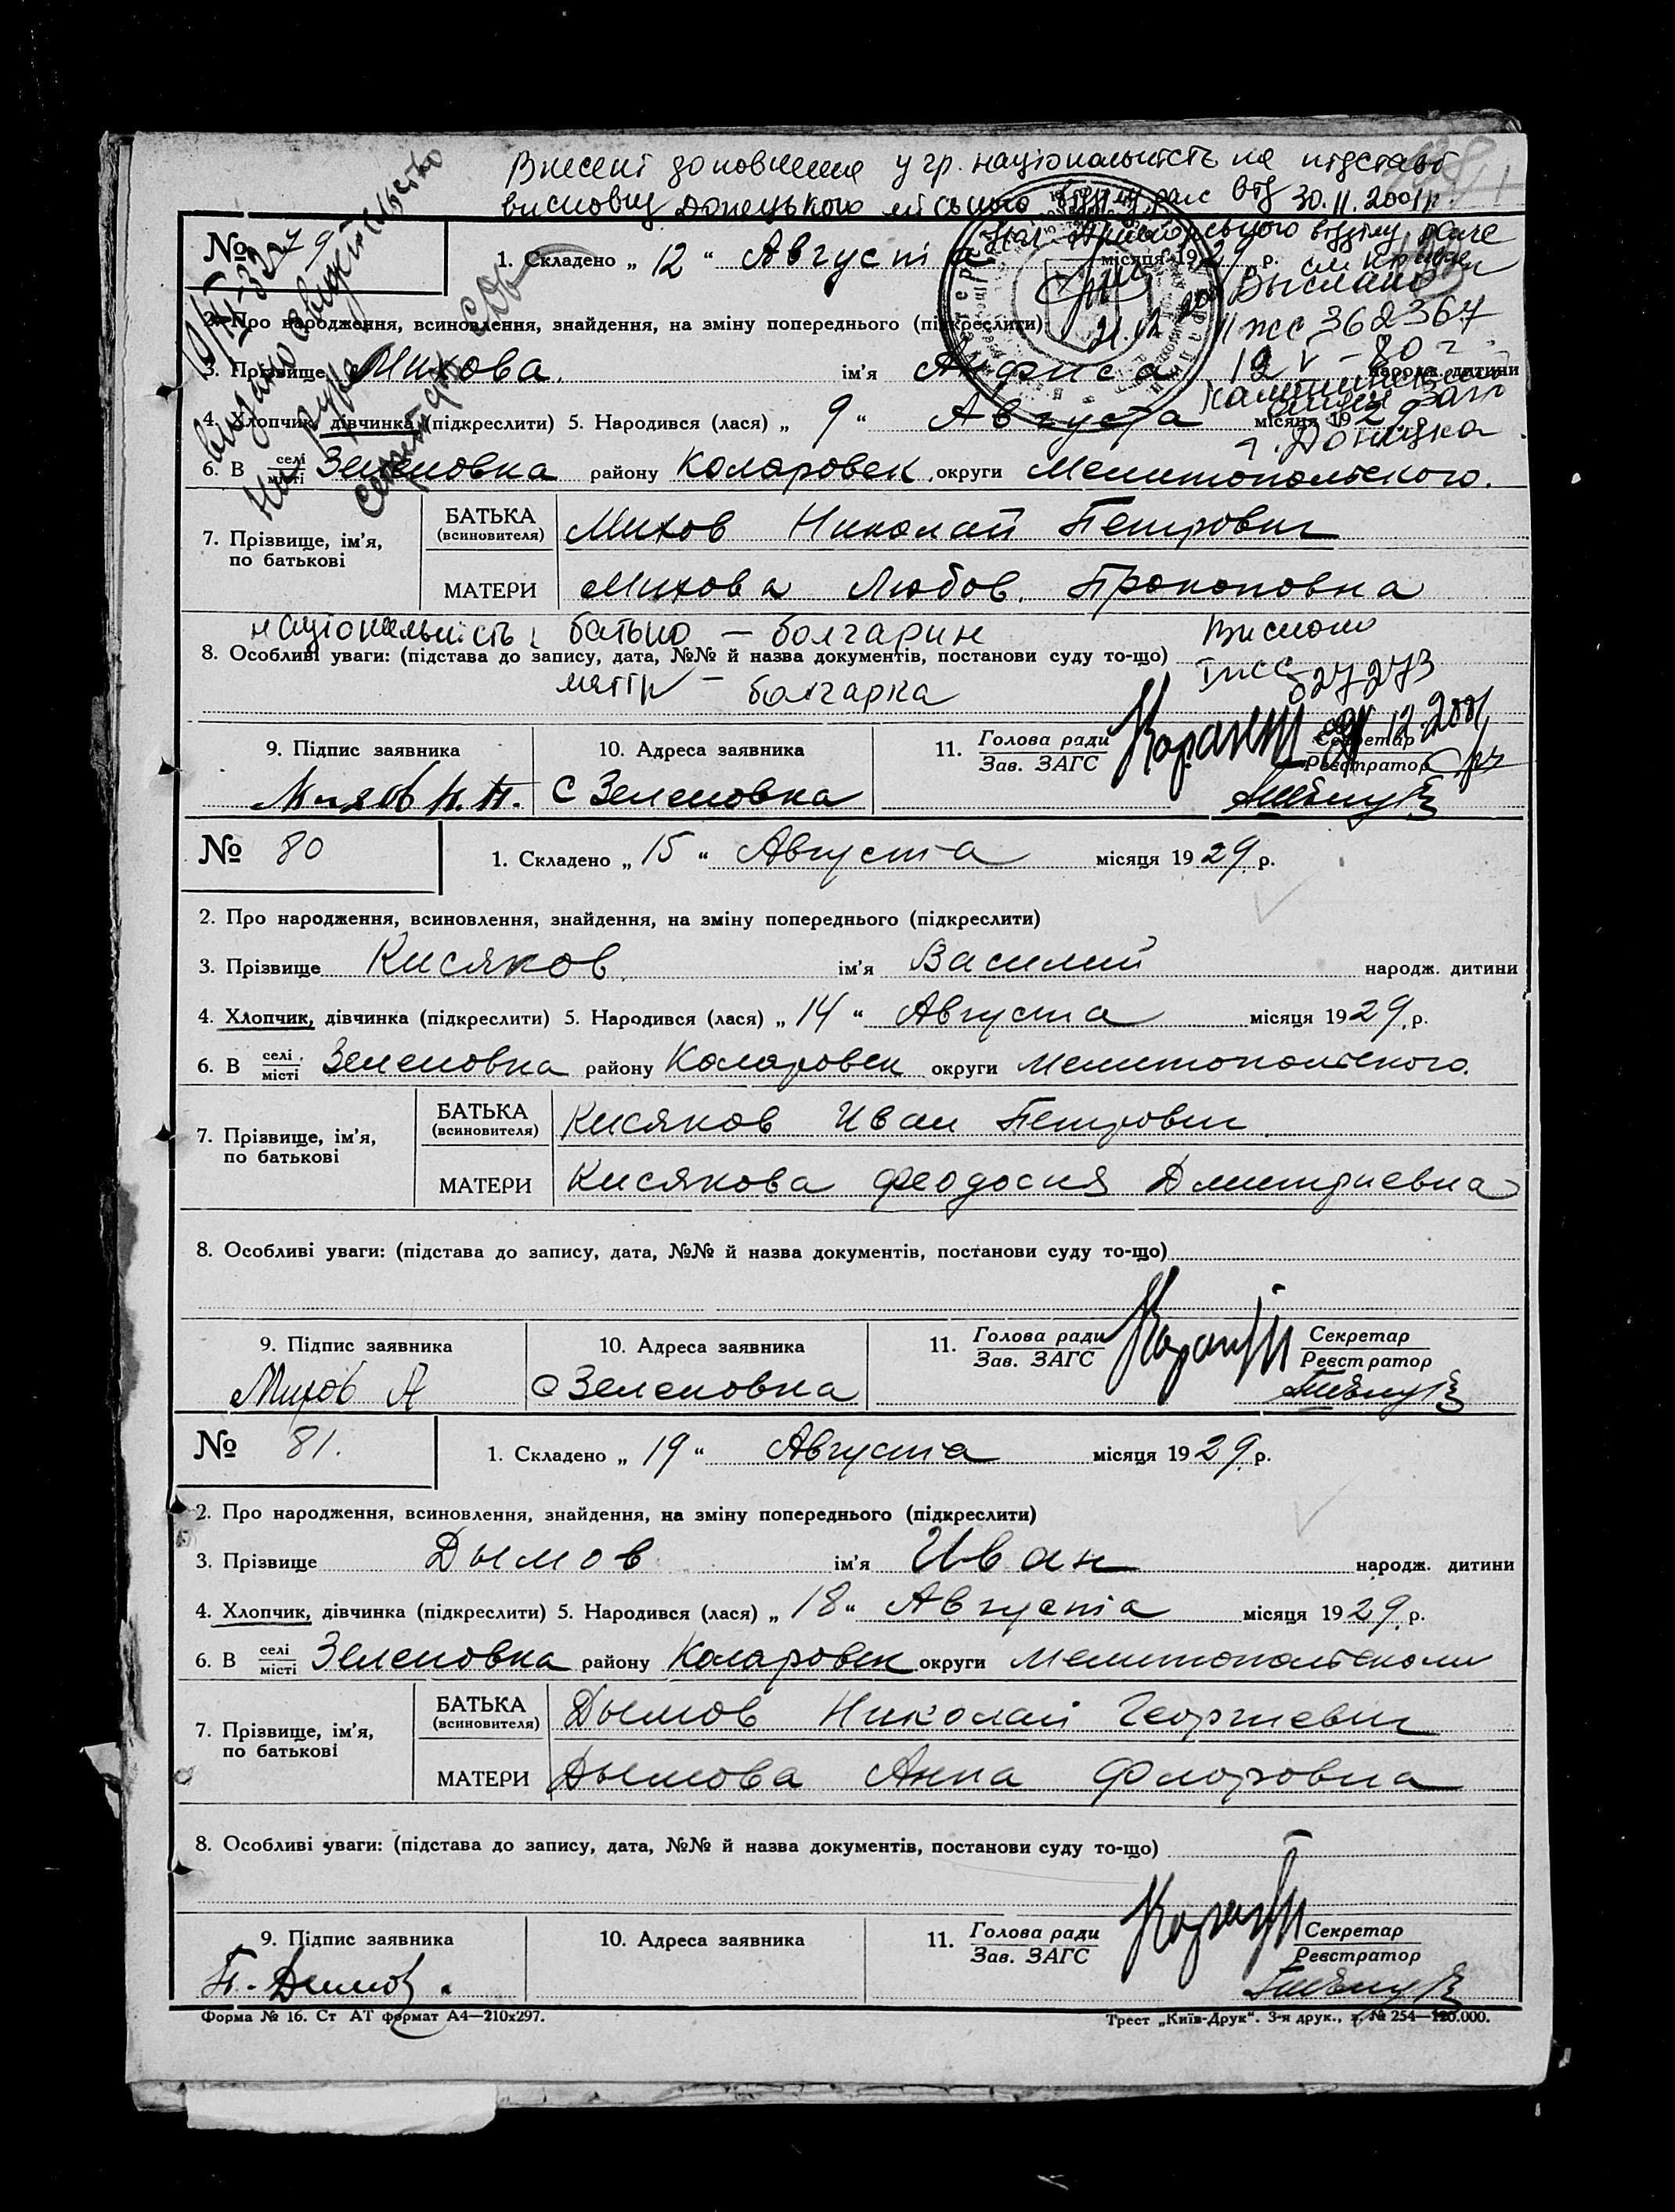 Внесені доповнення у гр. національність на підставі
висновку Донецького міського відділу рагс від 30.11.2001р.
№ 79
1. Складено „ 12 “ Августа місяця 1929 р.
Выслано
2. Про народження, всиновлення, знайдення, на зміну попереднього (підкреслити)
II жс 362367
3. Прізвище Михова. ім'я Анфиса народж. дитини
12 V – 80 г.
4. Хлопчик, дівчинка (підкреслити) 5. Народився (лася) „ 9 “ Августа місяця 1929 р.
г. Донецка
6. В селі/місті Зеленовка району Коларовск. округи Мелитопольского.
7. Прізвище, ім'я, по батькові
БАТЬКА (всиновителя) Михов Николай Петрович
МАТЕРИ Михова Любов. Прокоповна
національність: батько – болгарин
8. Особливі уваги: (підстава до запису, дата, №№ й назва документів, постанови суду то-що)
мати – болгарка
527273
12.2001
9. Підпис заявника 10. Адреса заявника 11. Голова ради/Зав. ЗАГС Секретар/Реєстратор
Михов Н.П. С Зеленовка
№ 80 1. Складено „ 15 “ Августа місяця 1929. р.
2. Про народження, всиновлення, знайдення, на зміну попереднього (підкреслити)
3. Прізвище Кисяков. ім'я Василий народж. дитини
4. Хлопчик, дівчинка (підкреслити) 5. Народився (лася) „ 14 “ Августа місяця 1929. р.
6. В селі/місті Зеленовка району Коларовск округи Мелитопольского.
7. Прізвище, ім'я, по батькові
БАТЬКА (всиновителя) Кисяков Иван Петрович
МАТЕРИ Кисякова Феодосия Дмитриевна
8. Особливі уваги: (підстава до запису, дата, №№ й назва документів, постанови суду то-що)
9. Підпис заявника 10. Адреса заявника 11. Голова ради/Зав. ЗАГС Секретар/Реєстратор
Михов А С Зеленовка
№ 81. 1. Складено „ 19 “ Августа місяця 1929. р.
2. Про народження, всиновлення, знайдення, на зміну попереднього (підкреслити)
3. Прізвище Дымов ім'я Иван народж. дитини
4. Хлопчик, дівчинка (підкреслити) 5. Народився (лася) „ 18 “ Августа місяця 1929. р.
6. В селі/місті Зеленовка району Коларовск округи Мелитопольском
7. Прізвище, ім'я, по батькові
БАТЬКА (всиновителя) Дымов Николай Георгиевич
МАТЕРИ Дымова Анна Флоровна
8. Особливі уваги: (підстава до запису, дата, №№ й назва документів, постанови суду то-що)
9. Підпис заявника 10. Адреса заявника 11. Голова ради/Зав. ЗАГС Секретар/Реєстратор
Форма № 16. Ст АТ формат А4—210х297. Трест „Київ-Друк“. 3-я друк., з. № 254—120.000.